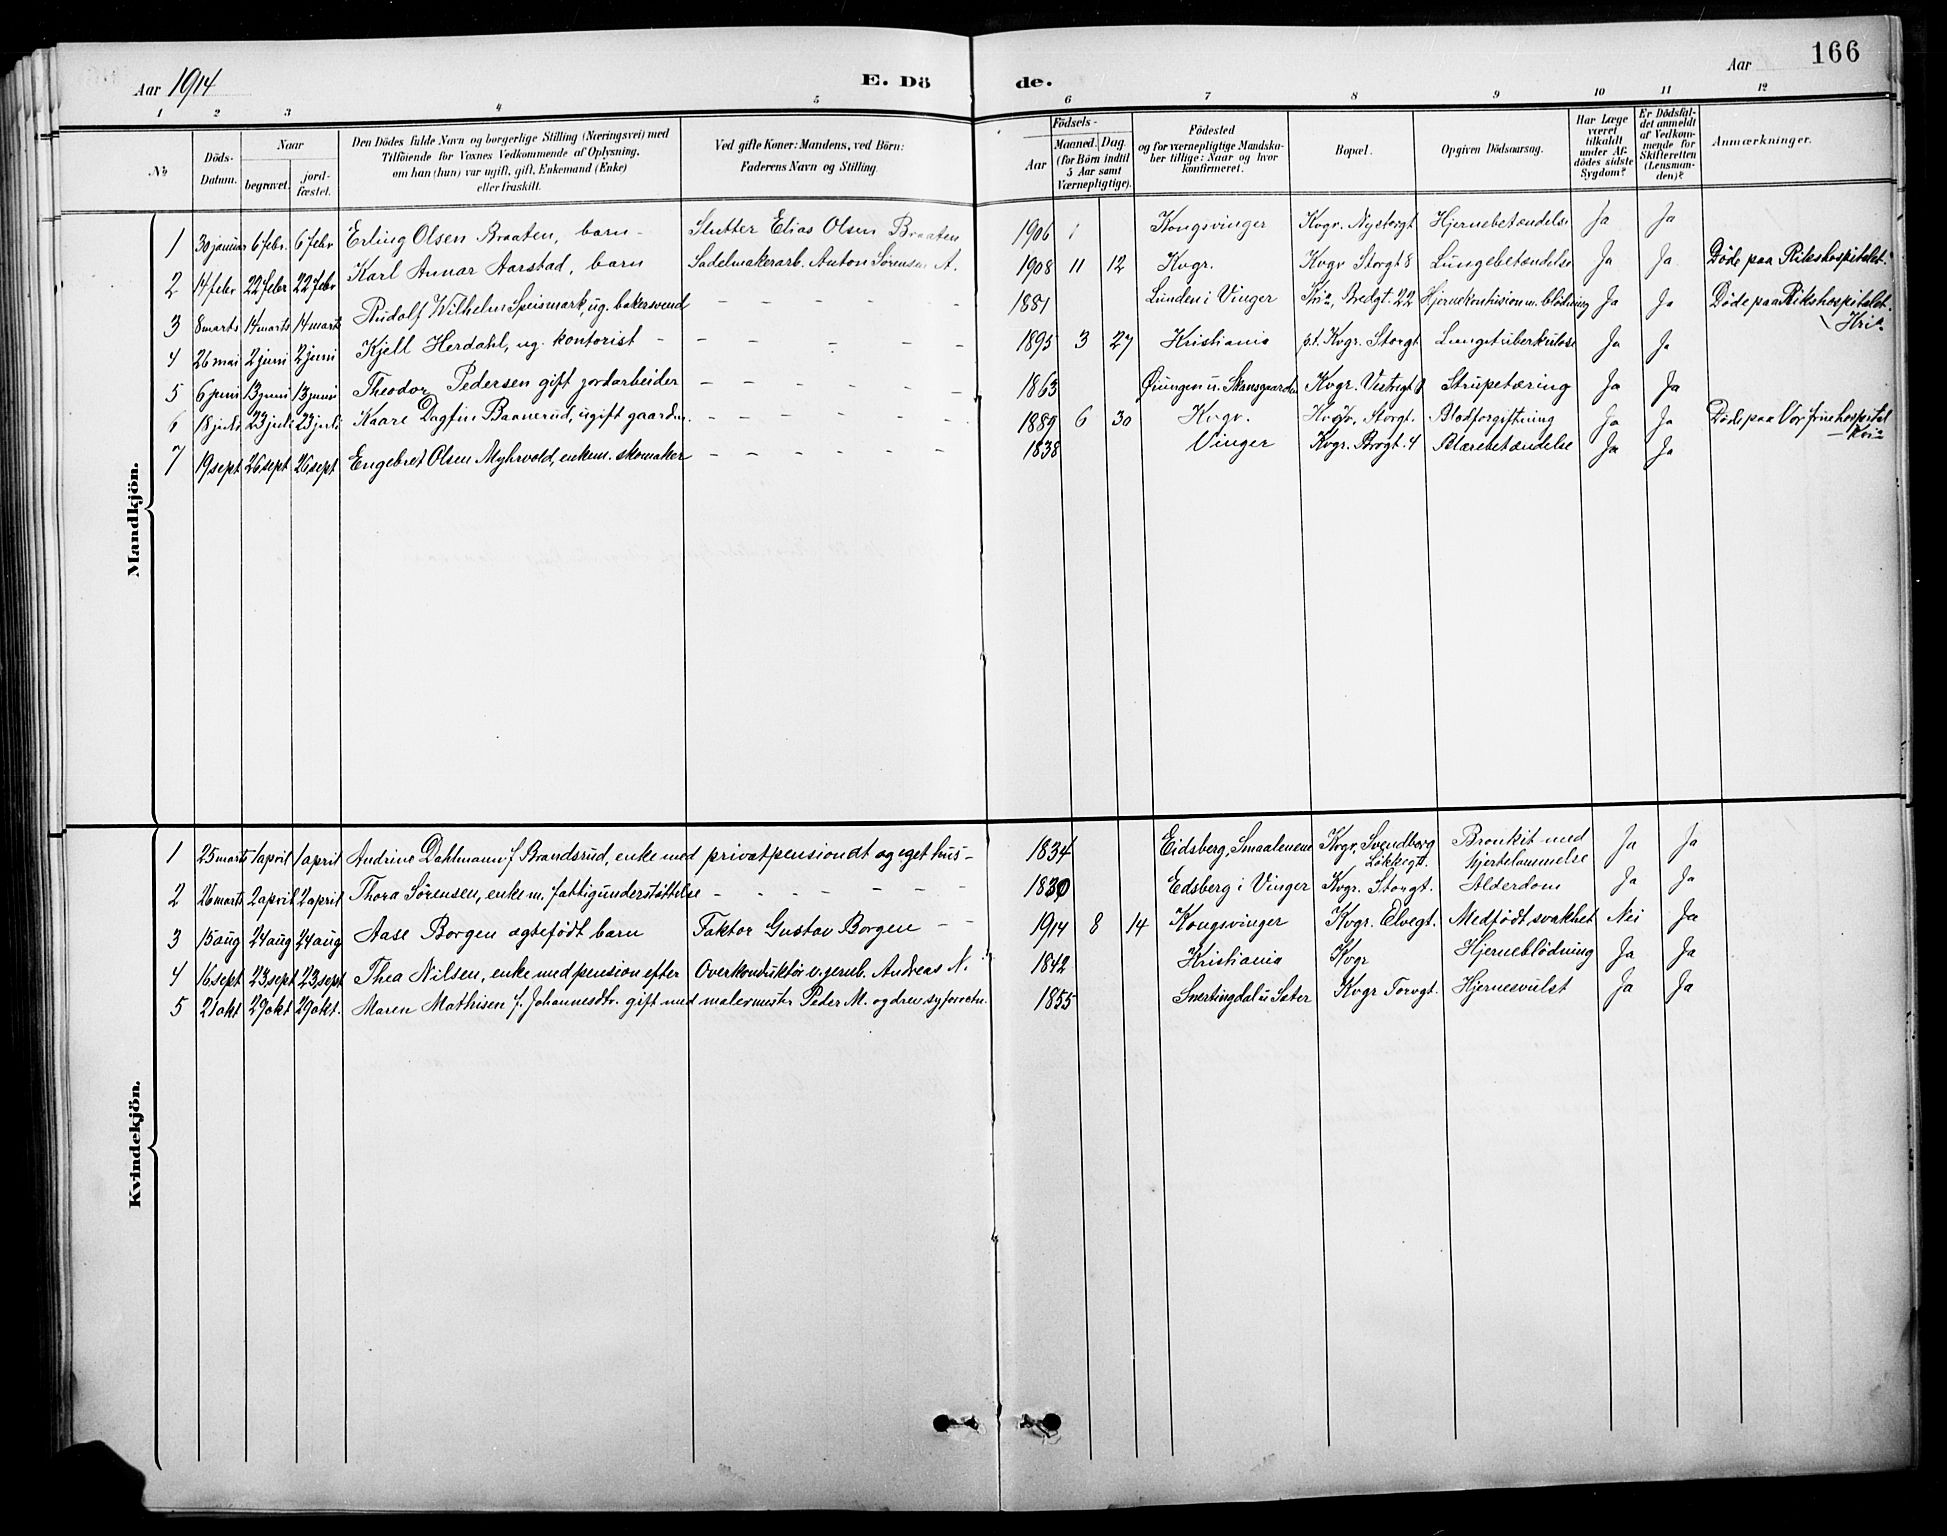 Aar 1914
E. Dö de.
Aar
166
1 2 3 4 5 6 7 8 9 10 11 12
No
Döds-Datum.
Naar
begravet.
jord-fæstet.
Den Dödes fulde Navn og borgerlige Stilling (Næringsvei) med
Tilföiende for Voxnes Vedkommende af Oplysning,
om han (hun) var ugift, gift, Enkemand (Enke)
eller fraskilt.
Ved gifte Koner: Mandens, ved Börn:
Faderens Navn og Stilling.
Födsels-
Aar
Maaned. Dag.
(for Börn indtil
5 Aar samt
Værnepligtige).
Födested
og for værnepligtige Mandska-
ber tillige: Naar og hvor
konfirmeret.
Bopæl.
Opgiven Dödsaarsag.
Har Læge
været
tilkaldt
under Af-
dödes sidste
Sygdom?
Er Dödsfal-
det anmeldt
af Vedkom-
mende for
Skifteretten
(Lensman-
den)?
Anmærkninger.
Mandkjön.
1 30 januar 6 febr. 6 febr Erling Olsen Braaten, barn - Slutter Elias Olsen Braaten 1906 1 Kongsvinger Kvgr. Nybergt Hjernebetændelse Ja Ja
2 14 febr 22 febr 22 febr Karl Annar Aarstad, barn Sadelmakerarb. Anton Sørensen A. 1908 11 12 Kvgr. Kvgr Storgt 8 Lungebetændelse Ja Ja Døde paa Rikshospitalet.
3 8 marts 14 marts 14 marts Rudolf Wilhelm Speismark, ug. bakersvend - - - - - - 1881 Lunden i Vinger Kria, Bredgt. 22 Hjernekontusion m. blödning Ja Ja Døde paa Rikshospitalet. Kria
4 26 mai 2 juni 2 juni Kjell Herdahl, ug. kontorist - - - - - - 1895 3 27 Kristiania p.t. Kvgr. Storgt Lungetuberkulose Ja Ja
5 6 juni 13 juni 13 juni Theodor Pedersen gift jordarbeider - - - - - - 1863 Øiungen u. Skansgaarden Kvgr. Vestregt 8 Strupetæring Ja Ja
6 18 juli 23 juli 23 juli Kaare Dagfin Baanerud, ugift gaardm. - - - - - - 1889 6 30 Kvgr. Kvgr, Storgt. Blodforgiftning Ja Ja Døde paa Vor frue hospital - Kria
7 19 sept 26 sept 26 sept Engebret Olsen Myhrvold, enkem. skomaker - - - - - - 1838 Vinger Kvgr. Brogt. 4 Blærebetændelse Ja Ja
Kvindekjön.
1 25 marts 1 april 1 april Andrine Dahlmann f. Brandsrud, enke med privatpension dt og eget hus - 1834 Eidsberg, Smaalenene Kvgr, Svendborg Løkkegt. Bronkit med hjertelammelse Ja Ja
2 26 marts 2 april 2 april Thora Sørensen, enke m. fattigunderstöttelse - - - - - - 1830 Edsberg i Vinger Kvgr. Storgt. Alderdom Ja Ja
3 15 aug 24 aug 24 aug Aase Borgen ægtefödt barn Faktor Gustav Borgen - 1914 8 14 Kongsvinger Kvgr. Elvegt. Medfödt svakhet Nei Ja
4 16 sept 23 sept 23 sept Thea Nilsen, enke med pension efter Overkonduktör v. jernb. Andreas N. 1842 Kristiania Kvgr Hjerneblödning Ja Ja
5 21 okt 29 okt 29 okt. Maren Mathisen f. Johannesdtr. gift med malermester Peder M. og drev syforretn. 1855 Snertingdal u Sæter Kvgr Torvgt. Hjernesvulst Ja Ja